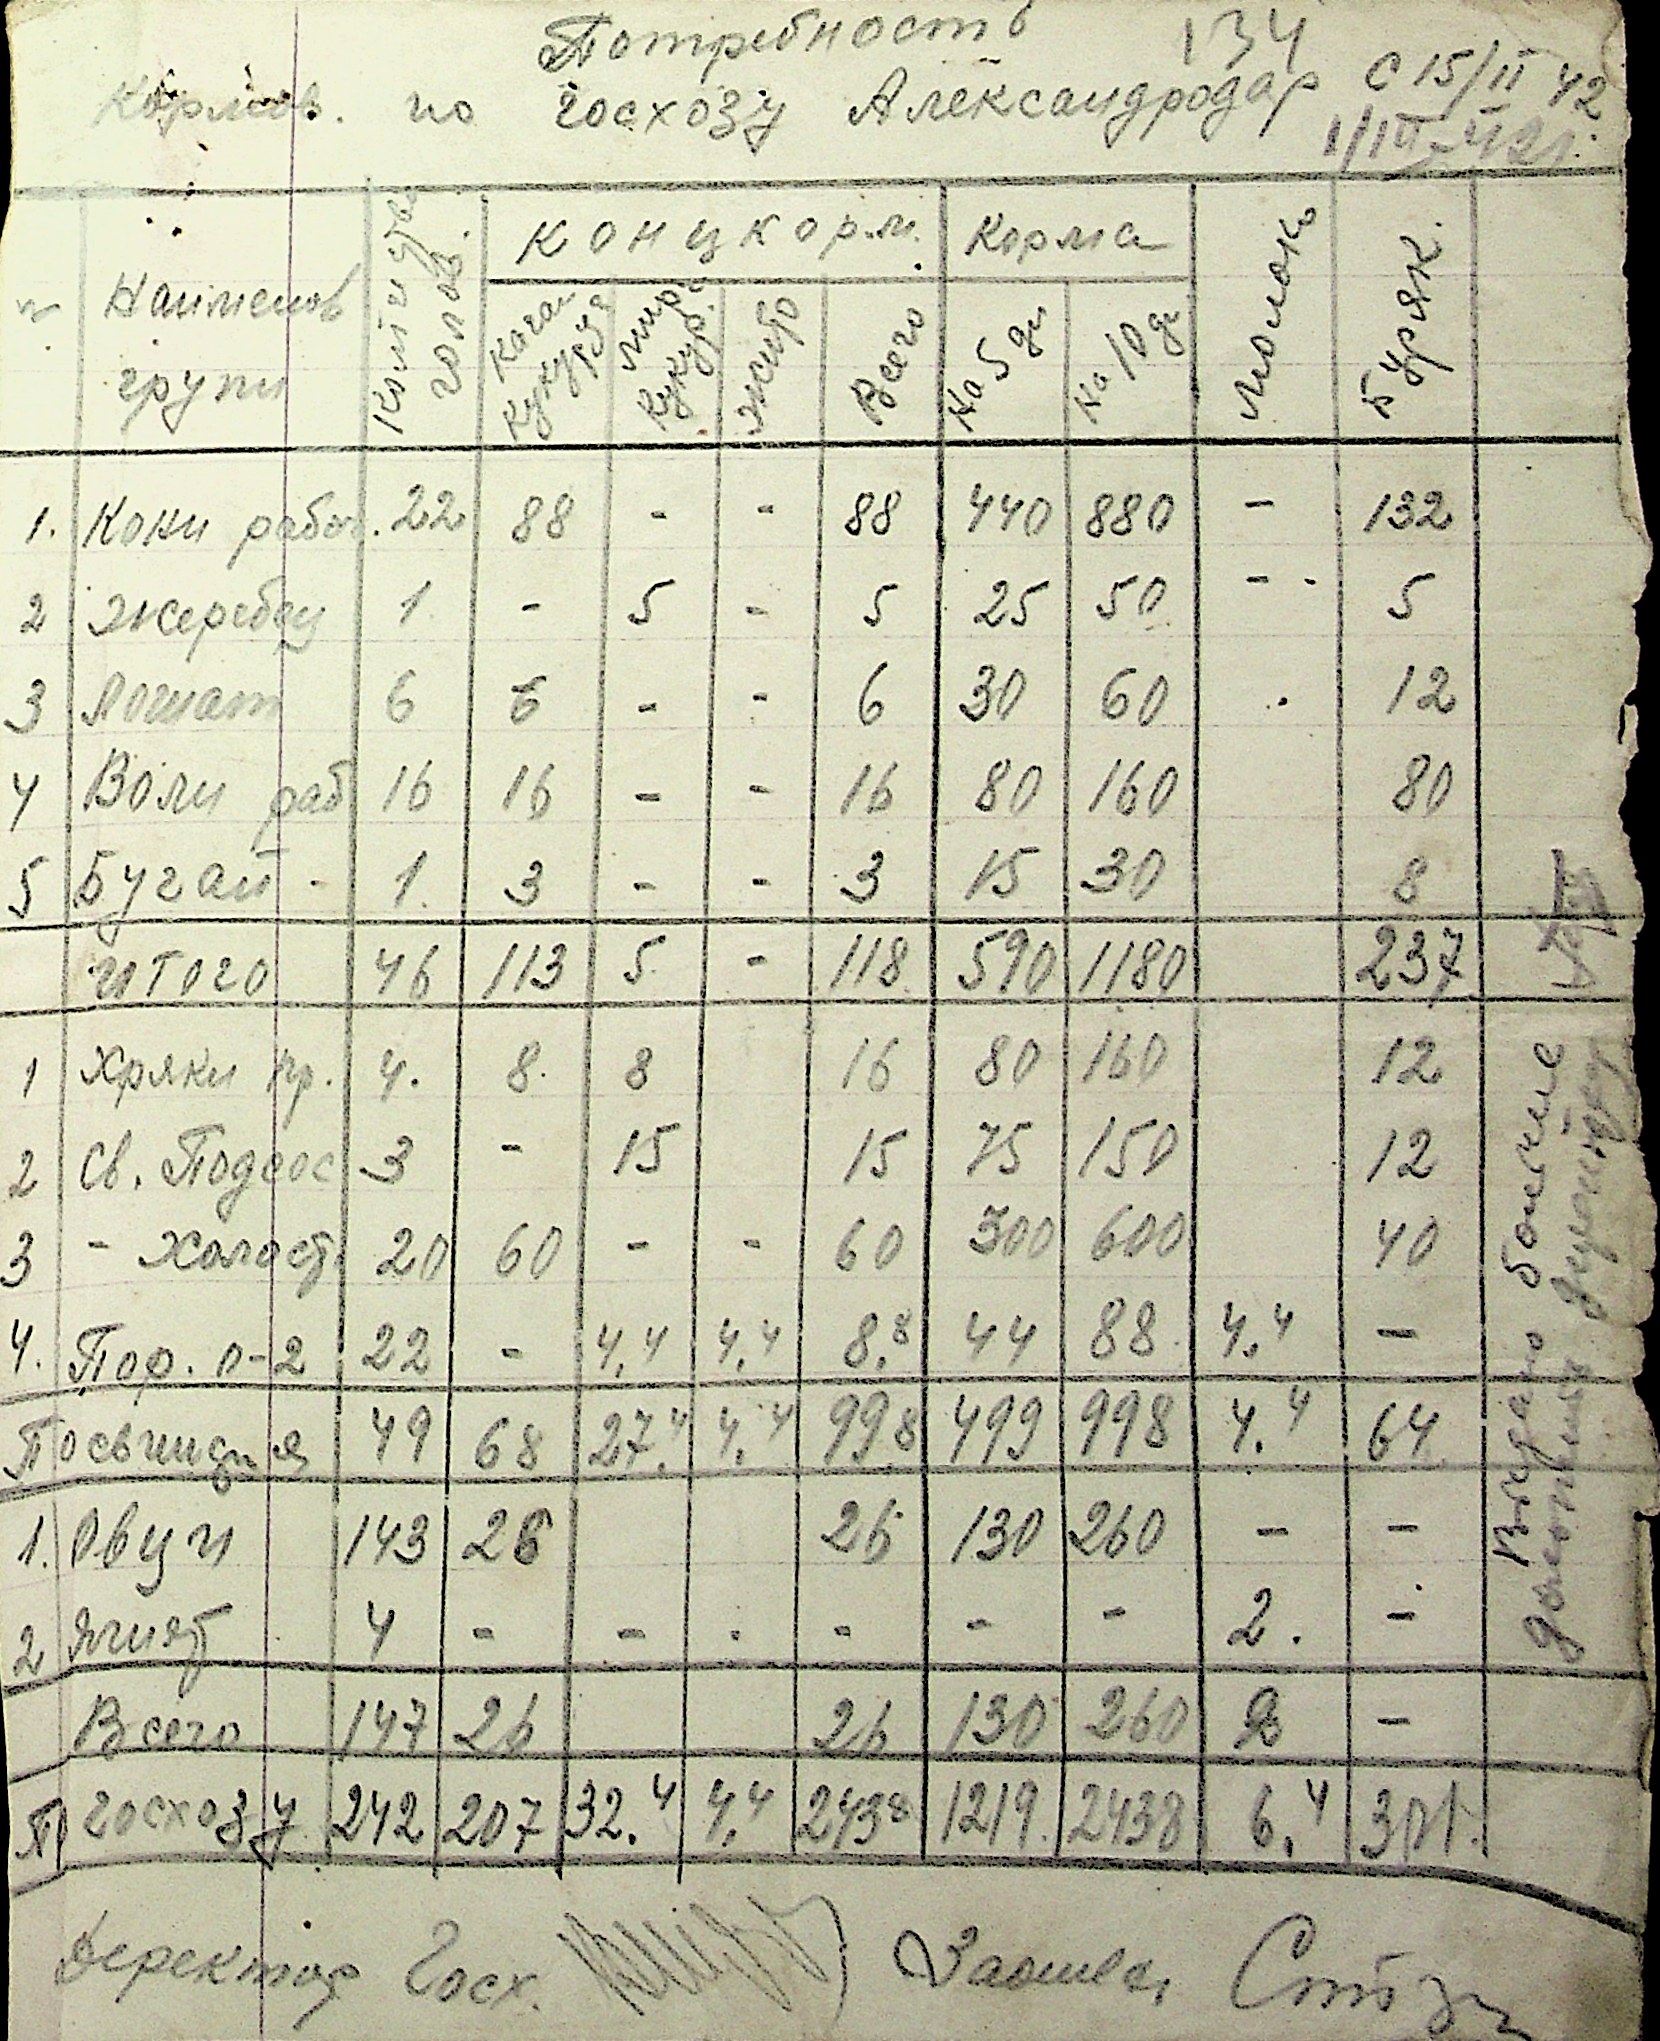 Потребность 134
Кормов. по госхозу Александродар с 15/II 42
1/III-42г.
Наименов групп Колич голов. Концкорм. Корма Молоко Буряк.
Кукуруза Кукур. Жито Всего На 5 дн На 10 дн
1. Кони рабоч. 22 88 - - 88 440 880 - 132
2 Жеребец 1. - 5 - 5 25 50 - - 5
3 Лошат 6 6 - - 6 30 60 . 12
4 Воли раб 16 16 - - 16 80 160 80
5 Бугай - 1. 3 - - 3 15 30 8
Итого 46 113 5 - 118 590 1180 237
1 Хряки пр. 4. 8. 8 16 80 160 12
2 Св. Подсос 3 - 15 15 75 150 12
3 - Холост. 20 60 - - 60 300 600 40
4. Пор. 0-2 22 - 4,4 4,4 8,8 44 88 4,4 -
По свинцья 49 68 27,4 4,4 99 8 499 998 4,4 64
1. Овци 143 26 26 130 260 - -
2 Ягнят 4 - - . - - - 2. -
Всего 147 26 26 130 260 2 -
П госхозу 242 207 32,4 4,4 243 8 1219. 2438 6,4 301.
Деректор Госх.
Выдано больше